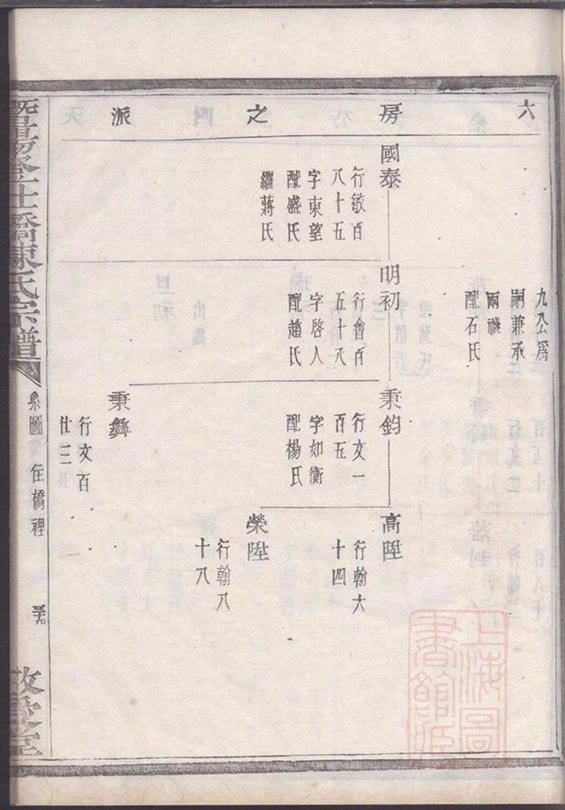 六房之派
九公爲
嗣兼承
兩祧
配石氏
國泰
行敏百
八十五
字東望
配盛氏
繼蔣氏
明初
行會百
五十八
字啓人
配趙氏
秉鈞
行文一
百五
字如衡
配楊氏
秉彝
行文百
廿三
高陞
行翰六
十四
榮陞
行翰八
十八
暨陽登仕橋陳氏宗譜
系圖
住橋裡
上海圖
書館藏